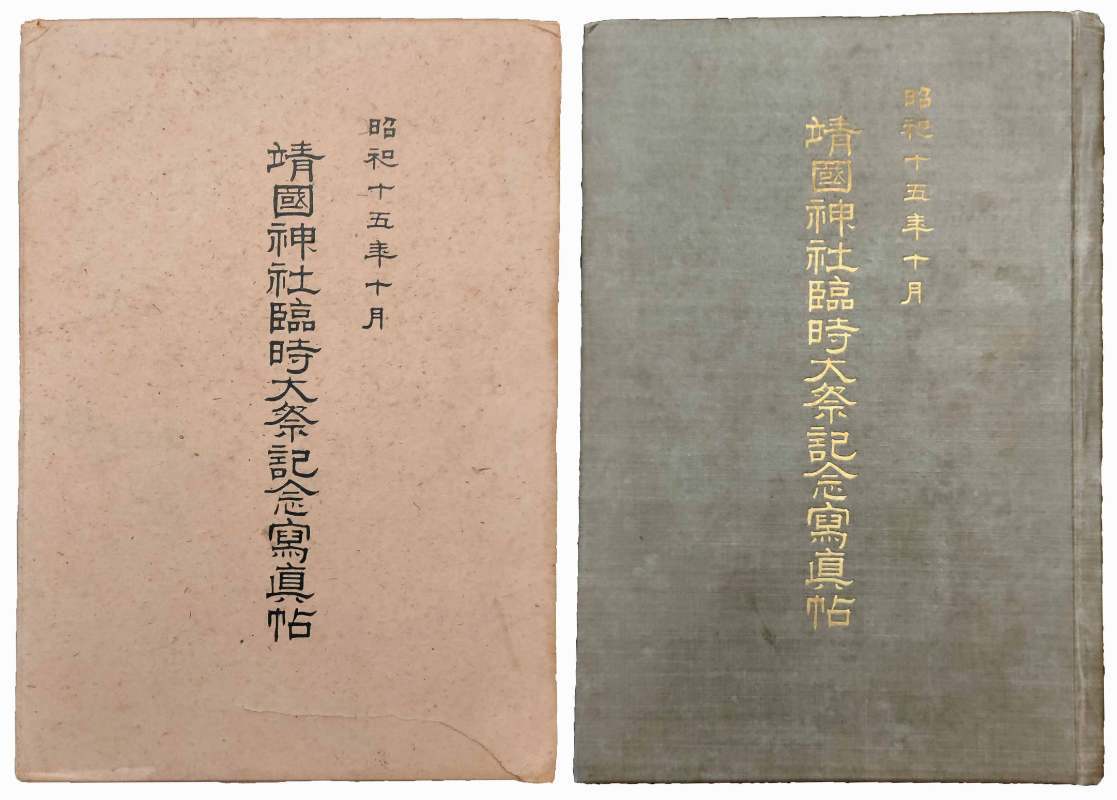 昭和十五年十月
靖國神社臨時大祭記念寫真帖
昭和十五年十月
靖國神社臨時大祭記念寫真帖